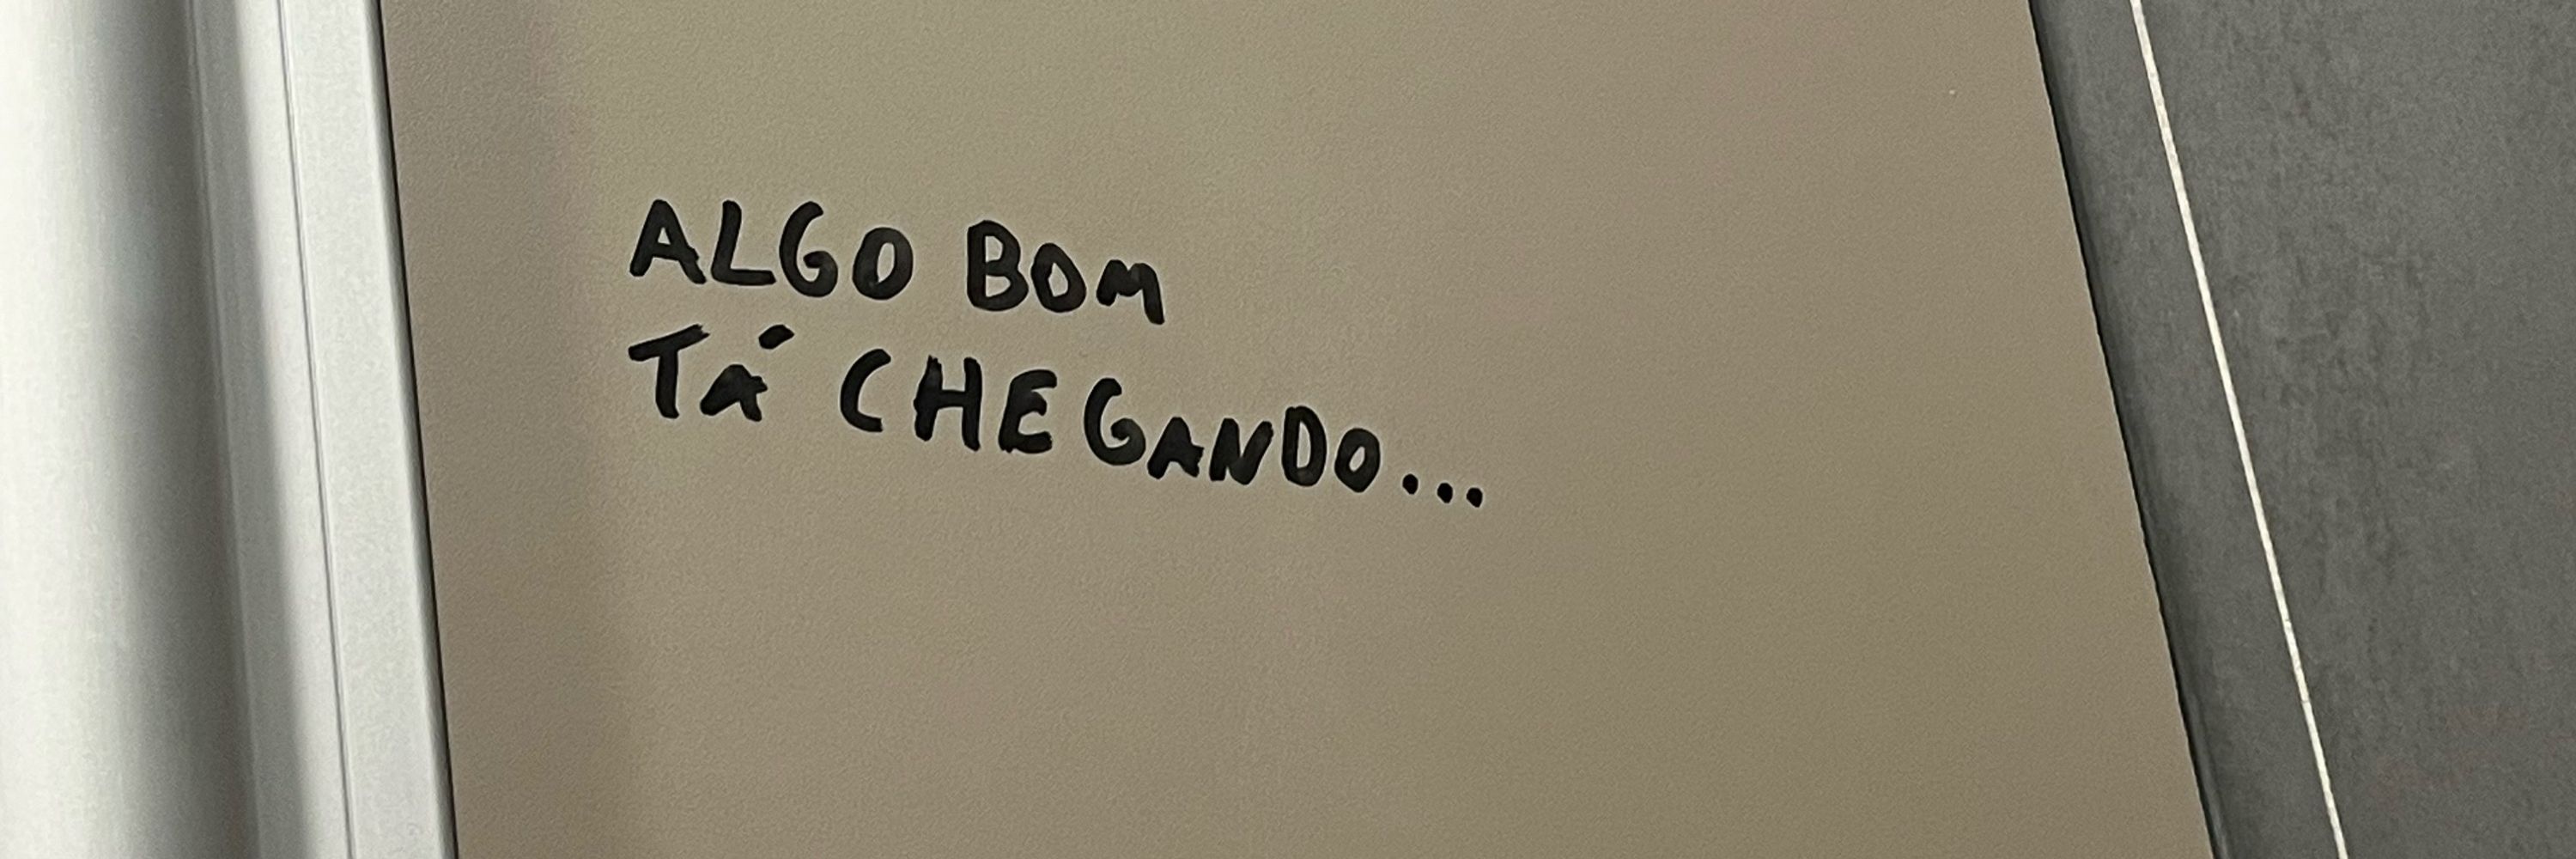 ALGO BOM
TÁ CHEGANDO...